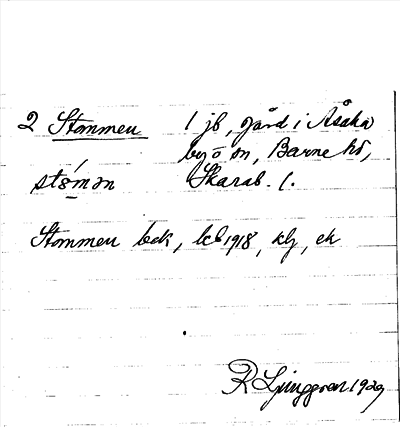 2 Stommen 1 jb, gård i Åsaka
by o sn, Barne hd,
Skarab. l.
Stommen bdk, kb 1918, klj, ek
R Ljunggren 1929